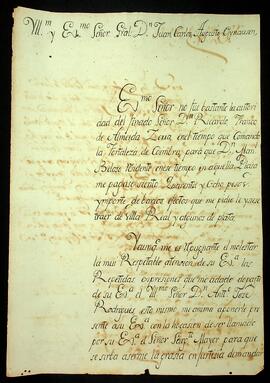 Yll.m y Ex.mo Señor Gral. D.n Juan Carlos Augusto Oyenausen
Ex.mo Señor no fué bastante la autori
dad del finado Señor D.n Ricardo Franco
de Almeida Zerra, en el tiempo que Comando
la Fortaleza de Coimbra, para que D.n Man.l
Belose residente en ese tiempo en aquella Plaza
me pagase siento Quarenta y Ocho pesos
ymporte de barios efectos que me pidio le yse
traer de Villa Real y algunos de plata.
Y aunq. me es Repugnante el molestar
la mui Respetable atension de su Ex.a las
Repetidas expresiones que me a de parte
de su Ex.a el Yll.mo Señor D.n Ant.o José
Rodrigues este mismo me anima aponerle pre
sente a su Ex.a con la hocasion de ser llamado
por su Ex.a el Señor Sarg.to Mayor para que
se sirba aserme la grasia en justisia de mandar